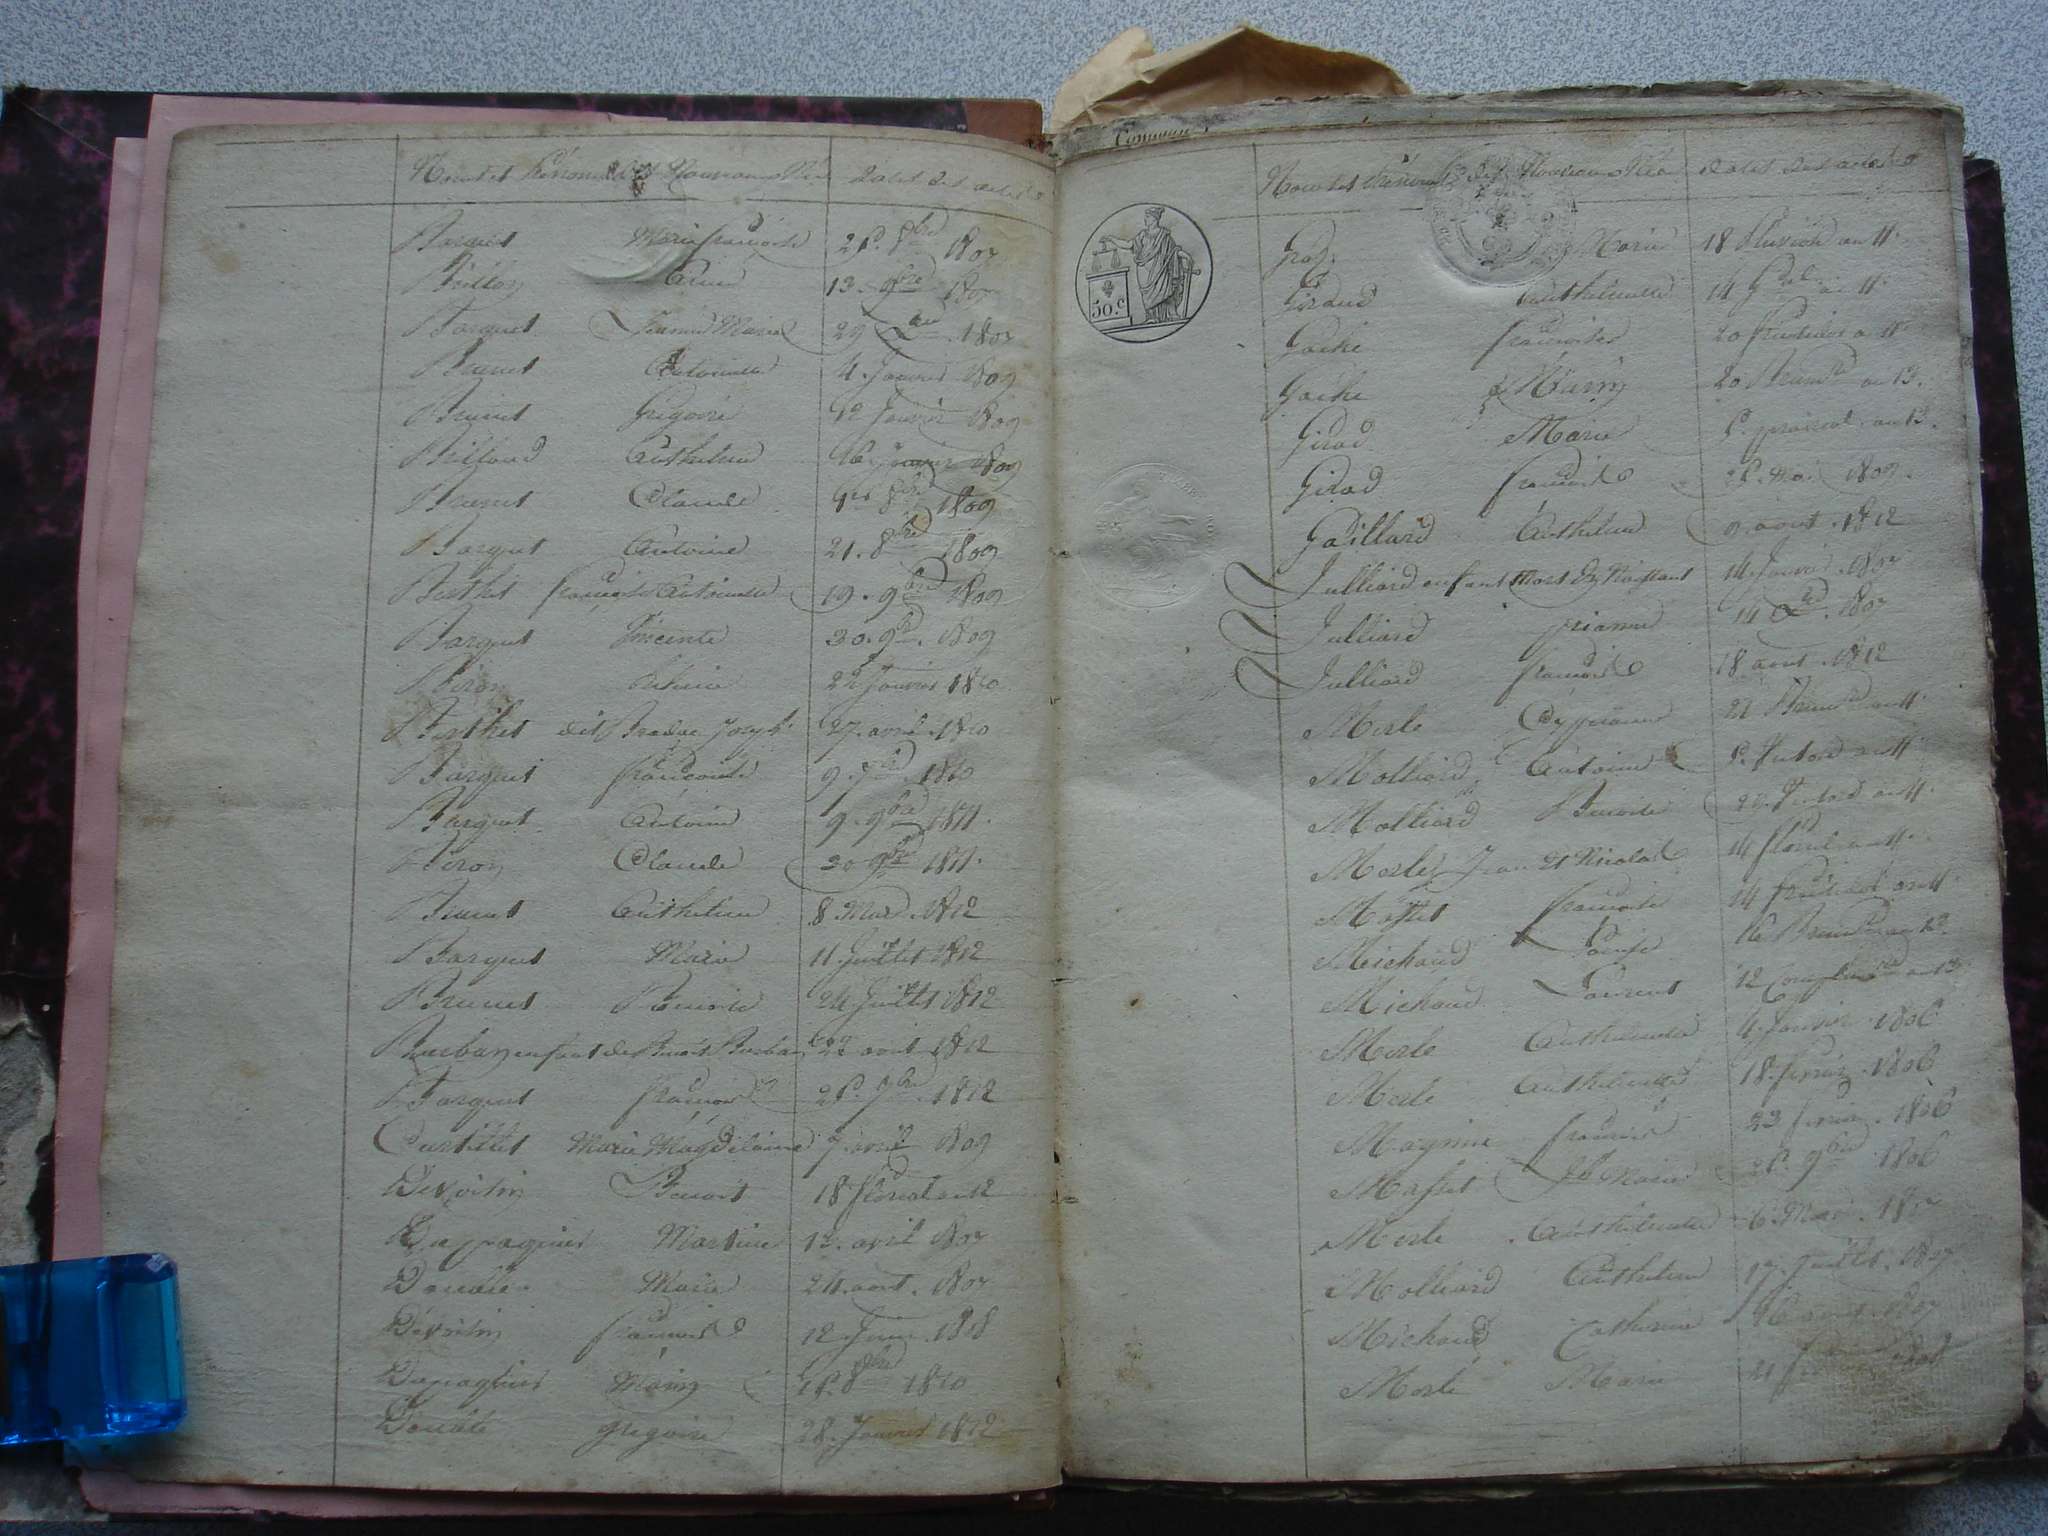 Noms et Prénoms des Nouveaux Nés Dates des actes
Barquet Marie françoise 25. 8bre 1807
Billon Aimé 13. 9bre 1807
Barquet Jeanne Marie 29 Xbre 1807
Brunet Antoinette 4. Janvier 1809
Brunet Grégoire 12 Janvier 1809
Billoud Anthelme 16 Janvier 1809
Brunet Claude 8bre 1809
Barquet Antoine 21. 8bre 1809
Berthet françoise Antoinette 19. 9bre 1809
Barquet Vincente 30. 9bre 1809
Biron 22 Janvier 1810
Berthet dit Bradae Joseph 27. avril. 1810
Barquet françoise 9. 7bre 1810
Barquet Antoine 9. 9bre 1811.
Biron Claude 30 9bre 1811.
Brunet Anthelme 8 Mars. 1812
Barquet Marie 11. Juillet 1812
Brunet Benoite 24 Juillet 1812
Burban enfant de Benoit Burban 22 août 1812
Barquet françoise 25. 9bre 1812
Curtillet Marie Magdelaine 7 avril 1809
Devoitin Benoit 18 floréal an 12
Dupasquier Martine 12. avril 1807
Double Marie 24. aout. 1807
Devoitin françoise 12 Juin. 1808
Dupasquier Marin 15. 8bre 1810
Double Grégoire 28. Janvier 1812
Commune
Noms et Prénoms des Nouveaux Nés Dates des actes
50.c
Marie 18 Pluviôse an 11.
Giraud Anthelmette 14 Gal an 11.
Goche françoise 20 fructidor an 11
Goche Marin 20 Brumre an 13.
Girod Marie prairial. an 13.
Girod françoise 25. Mai 1809.
Gaillard Anthelme 9. aout. 1812
Julliard enfant Mort En Naissant 14. Janvier. 1807
Julliard pierre 14 Xbre. 1807
Julliard françoise 18 aout. 1812
Merle Cyprienne 21 Brumre an 11.
Molliard Antoine Ventose an 11
Molliard Benoite Ventose an 11.
Merle Jean et Nicolas 14 floréal an 11.
Masset françoise 14 an 11.
Michaud Louise 16 Brumre an 12.
Michaud Laurent 12 Complre an 13
Merle Anthelmette 4. Janvier. 1806
Merle Anthelmette 18. février. 1806
Magnin françoise 23 février. 1806
Masset Marie 25. 9bre 1806
Merle Anthelmette 6. Mai. 1807
Molliard Anthelme 17. Juillet. 1807
Michaud Catherine 16 aout. 1807
Merle Marie 21 1808